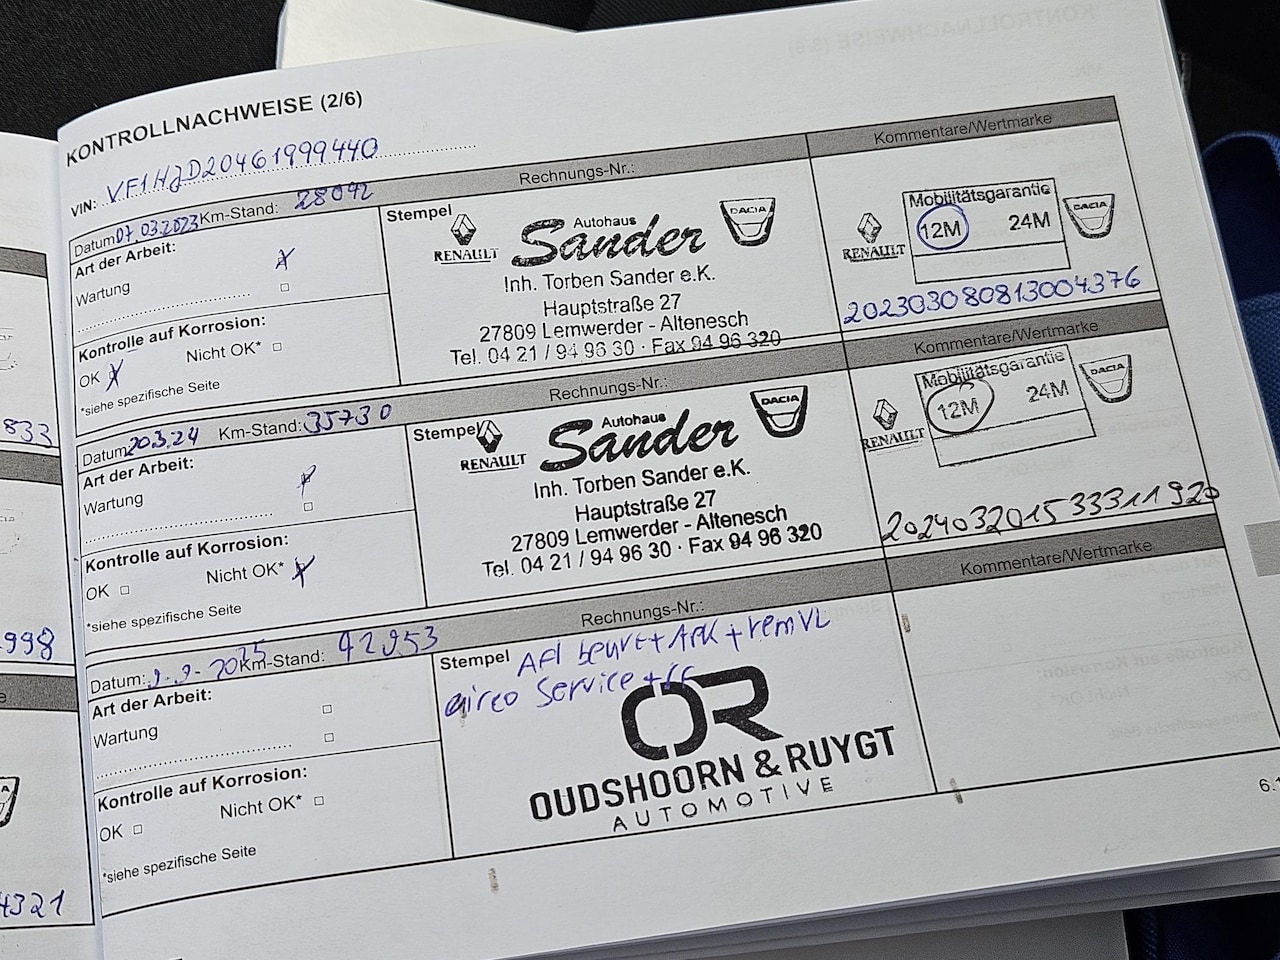 KONTROLLNACHWEISE (2/6)
VIN: VF1HJD20461999440
Rechnungs-Nr.:
Kommentare/Wertmarke
Datum 07.03.2023 Km-Stand: 28092
Art der Arbeit:
Wartung
Kontrolle auf Korrosion:
OK X Nicht OK* □
*siehe spezifische Seite
Stempel
RENAULT
Autohaus
Sander
DACIA
Inh. Torben Sander e.K.
Hauptstraße 27
27809 Lemwerder - Altenesch
Tel. 04 21 / 94 96 30 · Fax 94 96 320
RENAULT
Mobilitätsgarantie
12M 24M
DACIA
202303080813004376
833
Rechnungs-Nr.:
Kommentare/Wertmarke
Datum 20.3.24 Km-Stand: 35730
Art der Arbeit:
Wartung
Kontrolle auf Korrosion:
OK □ Nicht OK* X
*siehe spezifische Seite
Stempel
RENAULT
Autohaus
Sander
DACIA
Inh. Torben Sander e.K.
Hauptstraße 27
27809 Lemwerder - Altenesch
Tel. 04 21 / 94 96 30 · Fax 94 96 320
RENAULT
Mobilitätsgarantie
12M 24M
DACIA
202403201533311920
998
Rechnungs-Nr.:
Kommentare/Wertmarke
Datum: 9-9-2025 Km-Stand: 42953
Art der Arbeit:
Wartung
Kontrolle auf Korrosion:
OK □ Nicht OK* □
*siehe spezifische Seite
Stempel Afl beurt + APK + remVL
airco Service +
OR
OUDSHOORN & RUYGT
AUTOMOTIVE
4321
6.1